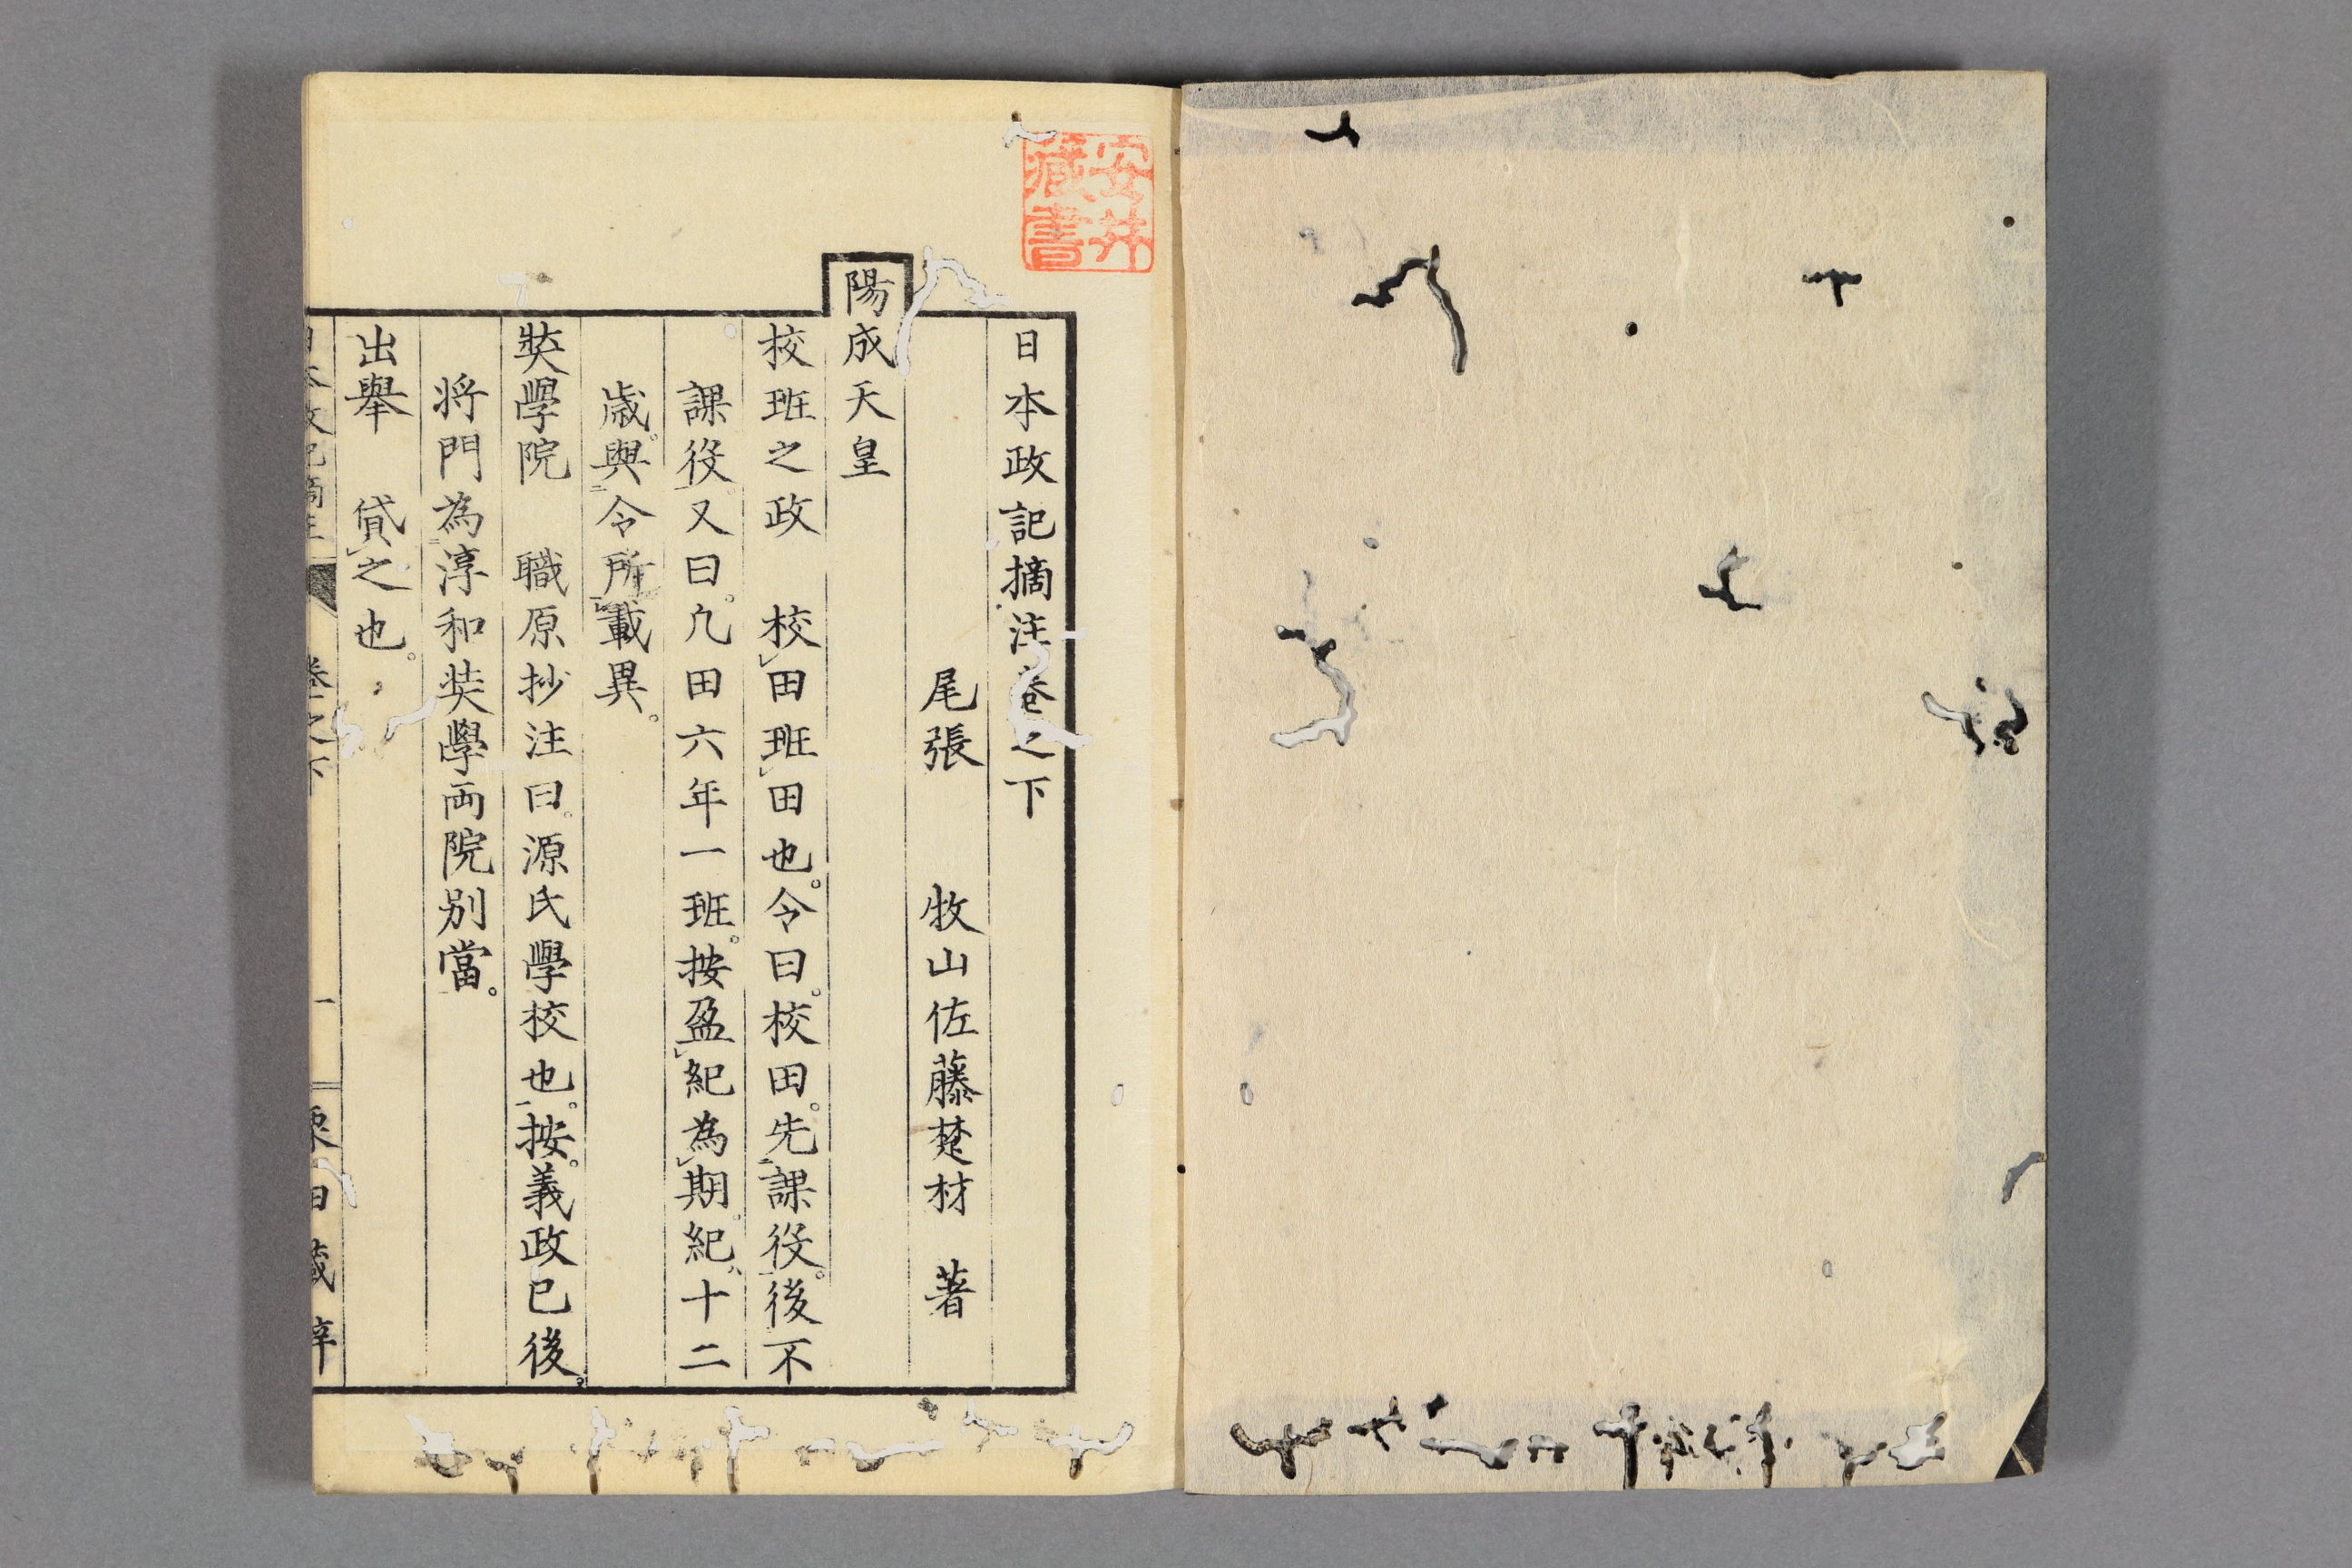 安井
藏書
日本政記摘注卷之下
尾張　牧山佐藤楚材　著
陽成天皇
校班之政　校田班田也。令曰。校田。先課役。後不
課役。又曰。凢田六年一班。按盈紀為期。紀、十二
歳。與令所載異。
奘學院　職原抄注曰。源氏學校也。按。義政已後。
将門為淳和奘學両院別當。
出舉　貸之也。
日本政記摘注　卷之下　一　藏梓